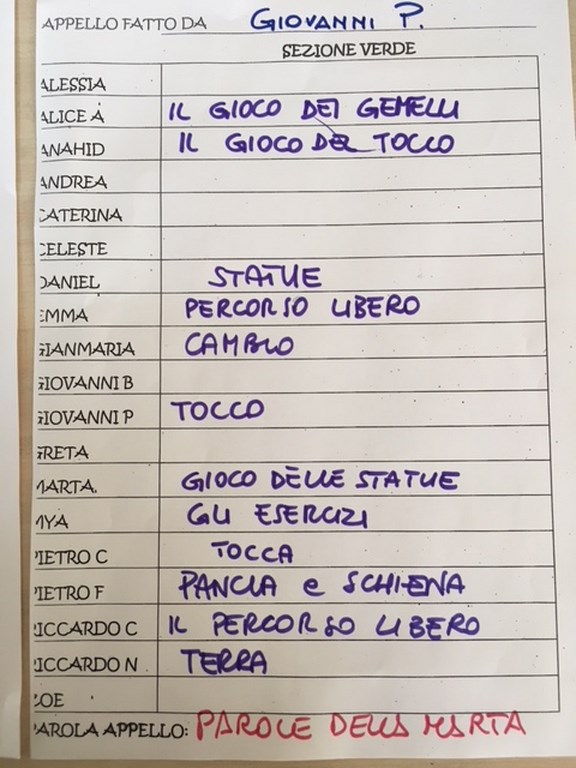 APPELLO FATTO DA GIOVANNI P.
SEZIONE VERDE
ALESSIA
ALICE A IL GIOCO DEI GEMELLI
ANAHID IL GIOCO DEL TOCCO
ANDREA
CATERINA
CELESTE
DANIEL STATUE
EMMA PERCORSO LIBERO
GIANMARIA CAMBIO
GIOVANNI B
GIOVANNI P TOCCO
GRETA
MARTA. GIOCO DELLE STATUE
MYA GLI ESERCIZI
PIETRO C TOCCA
PIETRO F PANCIA e SCHIENA
RICCARDO C IL PERCORSO LIBERO
RICCARDO N TERRA
ZOE
PAROLA APPELLO: PAROLE DELLA MARTA